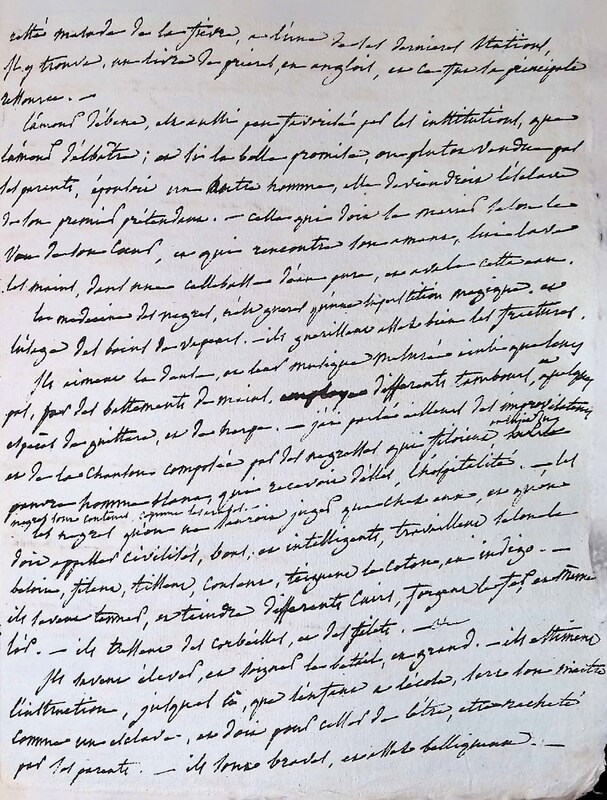 resté malade de la fièvre, a l'une de ses dernieres stations,
il y trouva, un livre de prieres, en anglois, et ce fut sa principale
ressource. —
L'amour d'ébene, est aussi peu favorisé par les institutions, que
l'amour d'albâtre; et si la belle promise, ou plutot vendue par
ses parents, épousoit un autre homme, elle deviendroit l'esclave
de son premier prétendant. — celle qui doit se marier selon le
vœu de son cœur, et qui rencontre son amant, lui lave
les mains, dans une callebasse d'eau pure, et avale cette eau.
La medecine des negres, n'est gueres qu'une superstition magique, et
l'usage des bains de vapeurs. — ils guerissent assez bien les fractures.
Ils aiment la danse, et leur musique mesurée ainsi que leurs
pas, par des battements de mains, differents tambours, et quelques
especes de guittare, et de harpe. — j'ai parlé ailleurs des improvisateurs
et de la chanson composée par des negresses qui filoient
pauvre homme blanc, qui recevoit d'elles, l'hospitalité. — les
negres sont contents, comme les
les negres qu'on ne sauroit juger que chez eux, et qu'on
doit appeller civilisés, bons, et intelligents, travaillent selon le
besoin, filent, tissent, cousent, teignent le coton, en indigo. —
ils savent tanner, et teindre differents cuirs, forgent le fer, et même
l'or. — ils tressent des corbeilles, et des filets. —
Ils savent élever, et soigner le betail, en grand. — ils estiment
l'instruction, jusques là, que l'enfant a l'école, sert son maitre
comme un esclave, et doit pour cesser de l'être, etre racheté
par ses parents. — ils sont braves, et assez belliqueux. —